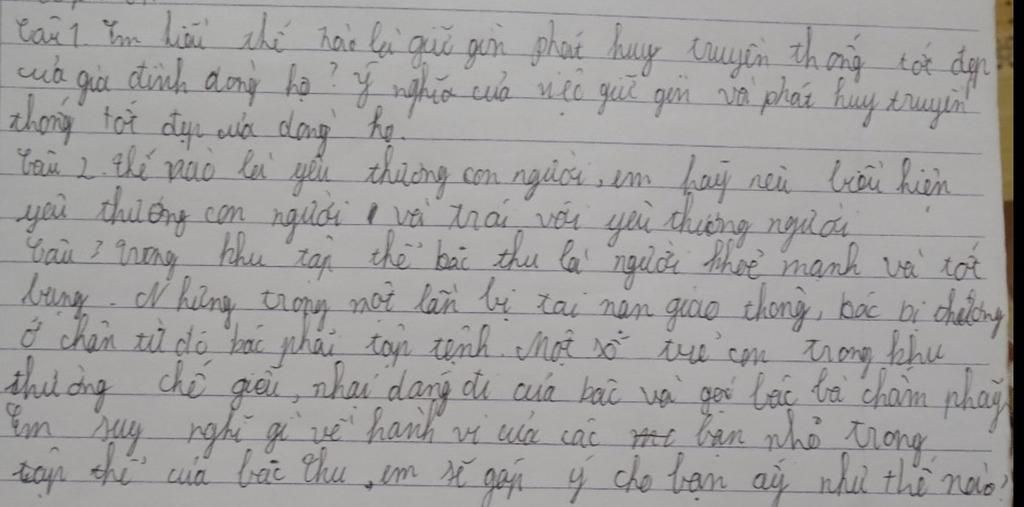 Câu 1. Em hiểu thế nào là giữ gìn phát huy truyền thống tốt đẹp
của gia đình dòng họ? Ý nghĩa của việc giữ gìn và phát huy truyền
thống tốt đẹp của dòng họ.
Câu 2. thế nào là yêu thương con người, em hãy nêu biểu hiện
yêu thương con người và trái với yêu thương người
Câu 3 trong khu tập thể bác thu là người khoẻ mạnh và tốt
bụng. Nhưng trong một lần bị tai nạn giao thông, bác bị chấn thương
ở chân từ đó bác phải tập tễnh. Một số trẻ con trong khu
thường chế giễu, nhái dáng đi của bác và gọi bác là chấm phẩy
Em suy nghĩ gì về hành vi của các bạn nhỏ trong
tập thể của bác thu, em sẽ góp ý cho bạn ấy như thế nào?